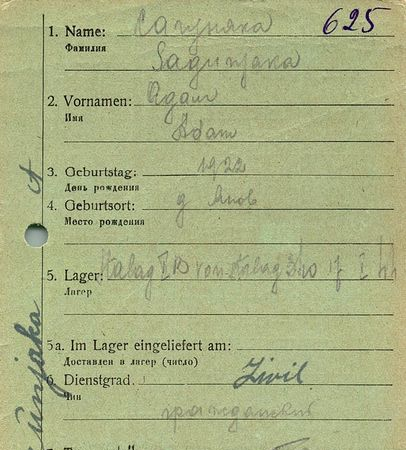 625
1. Name: Сагуняка
Фамилия
Sagunjaka
2. Vornamen: Адам
Имя
Adam
3. Geburtstag: 1922
День рождения
4. Geburtsort: д Янов
Место рождения
5. Lager: Stalag I B von Stalag
Лагер
5a. Im Lager eingeliefert am:
Доставлен в лагер (число)
6. Dienstgrad. Zivil
Чин
гражданский